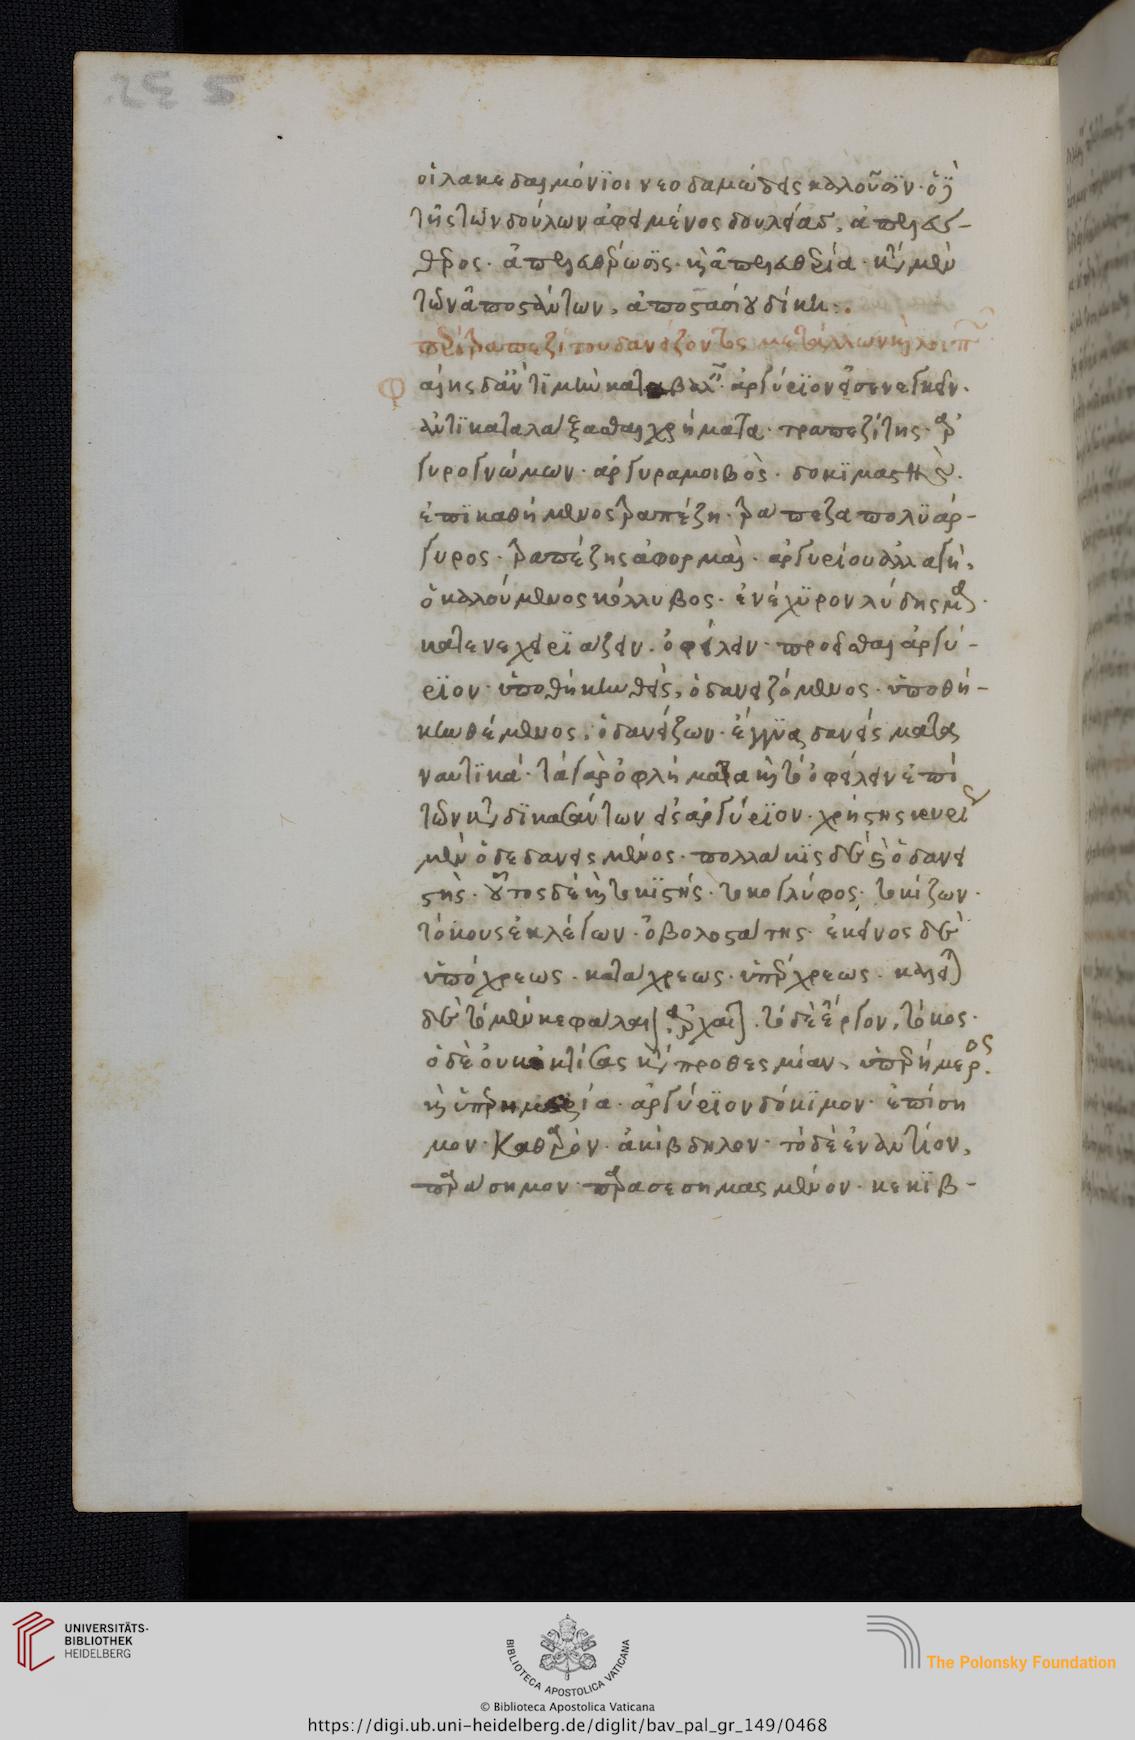 οἱ λακεδαιμόνϊοι νεοδαμώδεις καλοῦσϊν· ὅϊ
τῆς τῶν δούλων ἀφειμένος δουλείας, ἀπελεύ-
θερος· ἀπελευθέρωσϊς· κỳ ἀπελευθερία· κατὰ μὲν
τῶν ἀποστάντων, ἀποστασίου δίκη:.
περὶ τραπεζίτου δανείζοντος μετάλλων κỳ λοιπ
φαίης δ᾽ ἂν τϊμὴν καταβαλ· ἀργύρϊον εἰσενεγκεῖν·
ἀντϊκαταλλάξασθαι χρήματα· τραπεζίτης· ἀρ
γυρογνώμων· ἀργυραμοιβὸς· δοκϊμαστὴς·
ἐπϊκαθήμενος τραπέζη· τράπεζα πολϋάρ-
γυρος· τραπέζης ἀφορμαὶ· ἀργυρίου ἀλλαγὴ,
ὁ καλούμενος κόλλυβος· ἐνέχϋρον
κατενεχειρϊάζειν· ὀφείλειν· προέσθαι ἀργύ-
ρϊον· ὑποθήκην θεὶς, ὁ δανειζόμενος· ὑποθή-
κην θέμενος, ὁ δανείζων· ἔγγϋα δανείσματα
ναυτϊκά· τὰ γὰρ ὀφλήματα κỳ τὸ ὀφείλειν ἐπὶ
τῶν κατα δϊκασάντων εἰς ἀργύρϊον· χρήστης κυρί
μὲν ὁ δεδανεισμένος· πολλάκϊς δὲ κỳ ὁ δανει
στὴς· οὗτος δὲ κỳ τοκϊστής· τοκογλύφος· τοκίζων·
τόκους ἐκλέγων· ὀβολοστάτης· ἐκεῖνος δὲ
ὑπόχρεως· κατάχρεως· ὑπέρχρεως· καλεῖται
δὲ τὸ μὲν κεφάλαιον, ἀρχαῖον· τὸ δὲ ἔργον, τόκος·
ὁ δὲ οὐκ ἐκτίσας κατὰ προθεσμίαν, ὑπερήμερος·
κỳ ὑπερημερία· ἀργύρϊον δόκϊμον· ἐπίση
μον· καθαρὸν· ἀκίβδηλον· τὸ δὲ ἐναντίον,
παράσημον· παρασεσημασμένον· κεκϊβ-
UNIVERSITÄTS-
BIBLIOTHEK
HEIDELBERG
BIBLIOTECA APOSTOLICA VATICANA
The Polonsky Foundation
© Biblioteca Apostolica Vaticana
https://digi.ub.uni-heidelberg.de/diglit/bav_pal_gr_149/0468